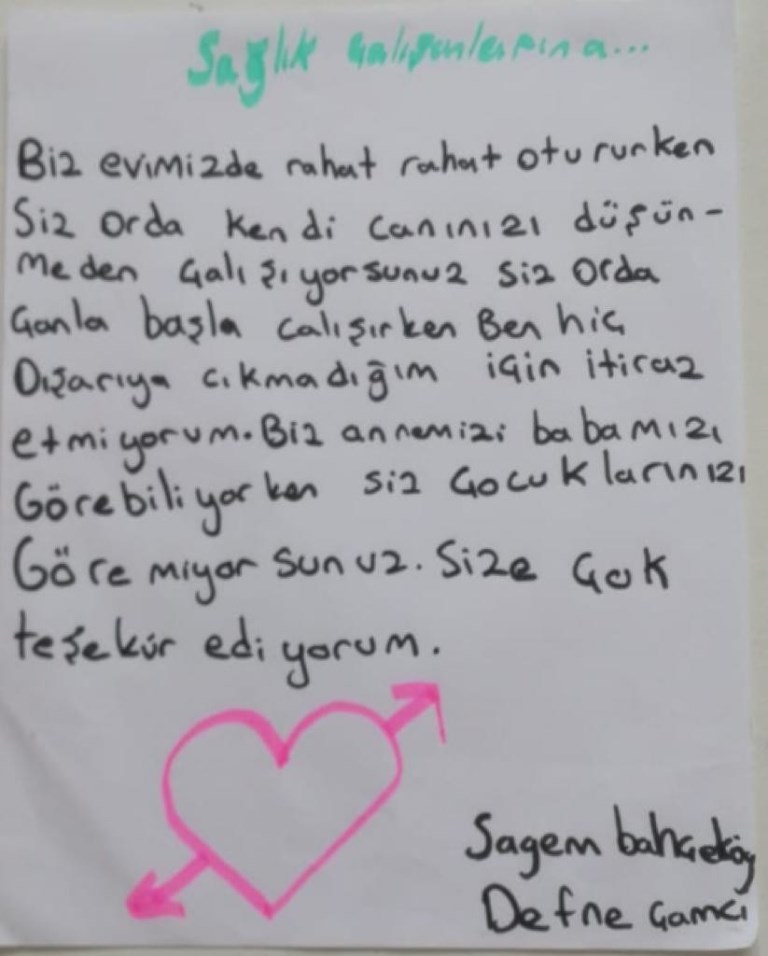 Sağlık Çalışanlarına...
Biz evimizde rahat rahat otururken
Siz orda kendi canınızı düşün-
meden Çalışıyorsunuz siz orda
Canla başla calışırken Ben hiç
Dışarıya cıkmadığım için itiraz
etmiyorum. Biz annemizi babamızı
Görebiliyorken siz Çocuklarınızı
Göremiyorsunuz. Size Çok
teşekür ediyorum.
Sagem bahçeköy
Defne Çamcı